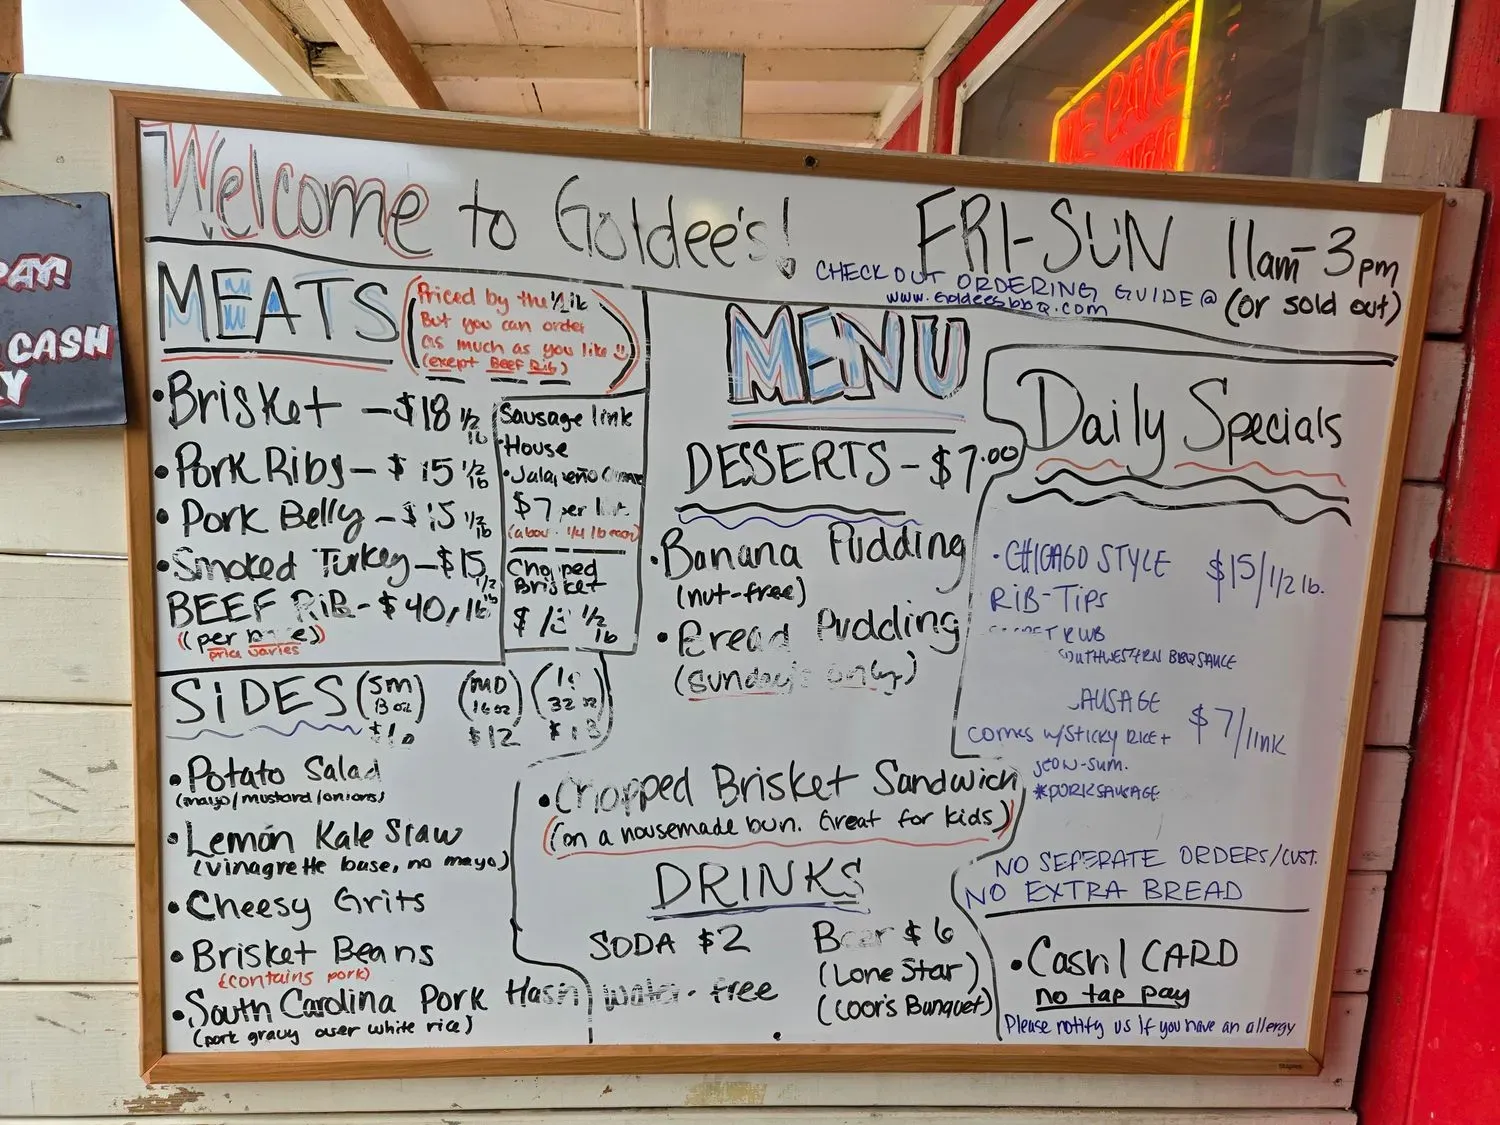 Welcome to Goldee's!
FRI-SUN 11am-3pm
(or sold out)
CHECK OUT ORDERING GUIDE @
www.Goldeesbbq.com
PAY!
CASH
MEATS
(Priced by the 1/2 lb
But you can order
as much as you like
(except BEEF Rib)
• Brisket - $18 1/2 lb
• Pork Ribs - $15 1/2 lb
• Pork Belly - $15 1/2 lb
• Smoked Turkey - $15 1/2 lb
BEEF RiB - $40/lb
(per bone)
price varies
Sausage link
• House
• Jalapeño
$7 per
(about 1/4 lb each)
Chopped
Brisket
1/2 lb
SIDES
(SM 8oz) (MD 16oz) (32oz)
$12
• Potato Salad
(mayo/mustard/onions)
• Lemon Kale Slaw
(vinagrette base, no mayo)
• Cheesy Grits
• Brisket Beans
(contains pork)
• South Carolina Pork Hash
(pork gravy over white rice)
MENU
DESSERTS - $7.00
• Banana Pudding
(nut-free)
• Bread Pudding
(sundays only)
• Chopped Brisket Sandwich
(on a housemade bun. Great for kids)
DRINKS
SODA $2
water - free
Beer $6
(Lone Star)
(Coor's Banquet)
Daily Specials
• CHICAGO STYLE $15/1/2 lb.
RIB-TIPS
RUB
SOUTHWESTERN BBQ SAUCE
AUSAGE $7/link
comes w/STICKY RICE +
JEOW-SUM.
*PORK SAUSAGE
NO SEPERATE ORDERS/CUST.
NO EXTRA BREAD
• Cash/CARD
no tap pay
Please notify us if you have an allergy